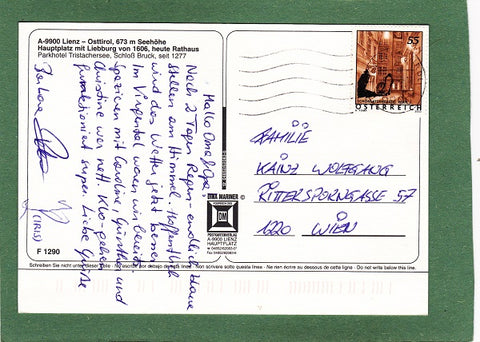 A-9900 Lienz – Osttirol, 673 m Seehöhe
Hauptplatz mit Liebburg von 1606, heute Rathaus
Parkhotel Tristachersee, Schloß Bruck, seit 1277
Hallo Oma & Opa
Nach 2 Tagen Regen endlich blaue
Stellen am Himmel. Hoffentlich
wird das Wetter jetzt besser.
Im Virgental waren wir bereits
spazieren mit Caroline, Günther und
Christine war nett. Klo-gehen
funktioniert super. Liebe Grüße
(IRIS)
F 1290
DINA MARINER
DM
POSTKARTENVERLAG
A-9900 LIENZ
HAUPTPLATZ
55
ÖSTERREICH
FAMILIE
KAINZ WOLFGANG
RITTERSPORNGASSE 57
1220 WIEN
Schreiben Sie nicht unter dieser Zeile - Ne rien écrire au dessous de cette ligne - Do not write below this line.